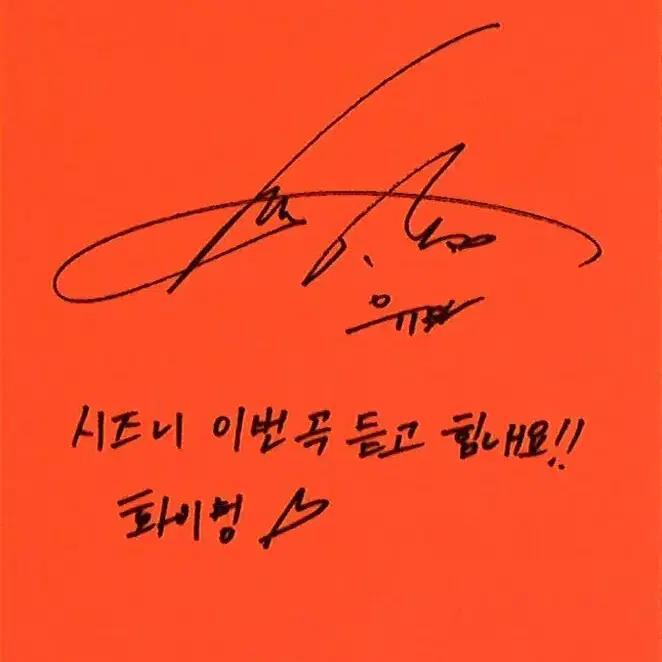 시즈니 이번 곡 듣고 힘내요!!
화이팅